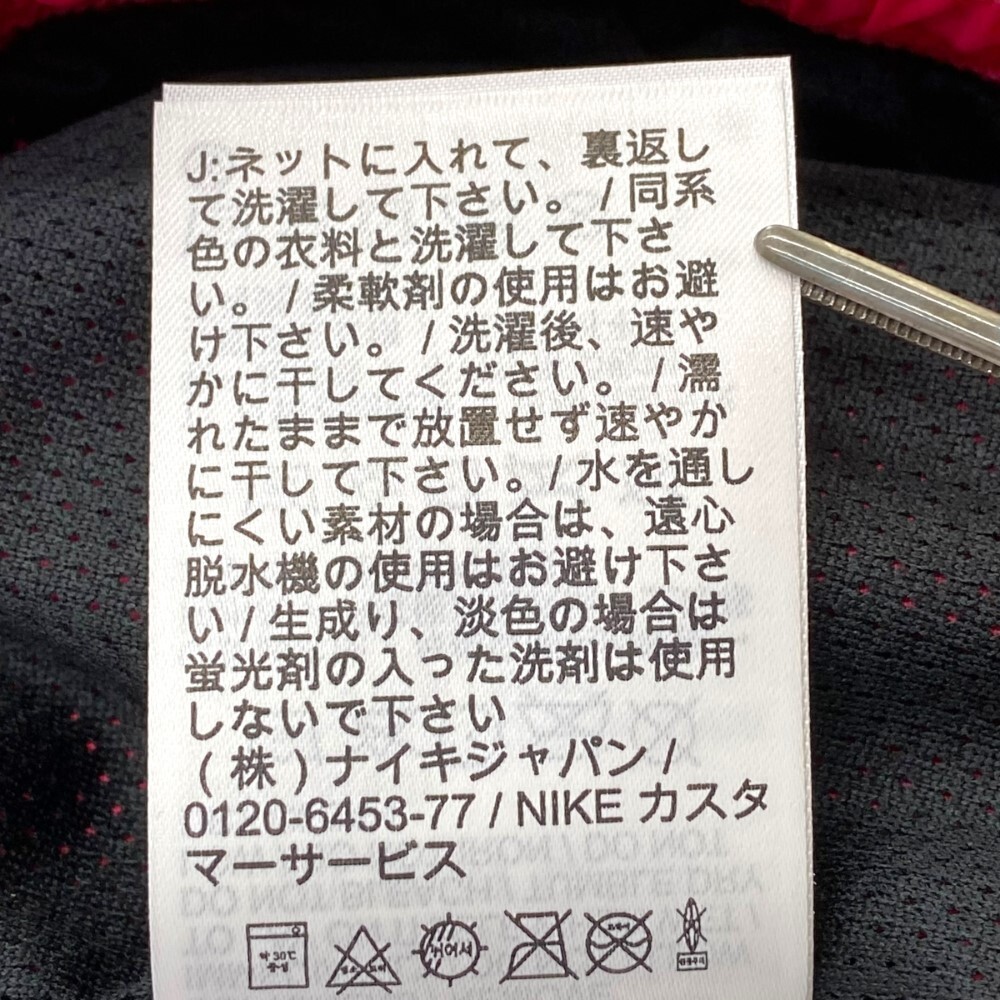 J:ネットに入れて、裏返し
て洗濯して下さい。 / 同系
色の衣料と洗濯して下さ
い。 / 柔軟剤の使用はお避
け下さい。 / 洗濯後、速や
かに干してください。 / 濡
れたままで放置せず速やか
に干して下さい。/ 水を通し
にくい素材の場合は、遠心
脱水機の使用はお避け下さ
い / 生成り、淡色の場合は
蛍光剤の入った洗剤は使用
しないで下さい
(株)ナイキジャパン /
0120-6453-77 / NIKE カスタ
マーサービス
약 30℃
중성